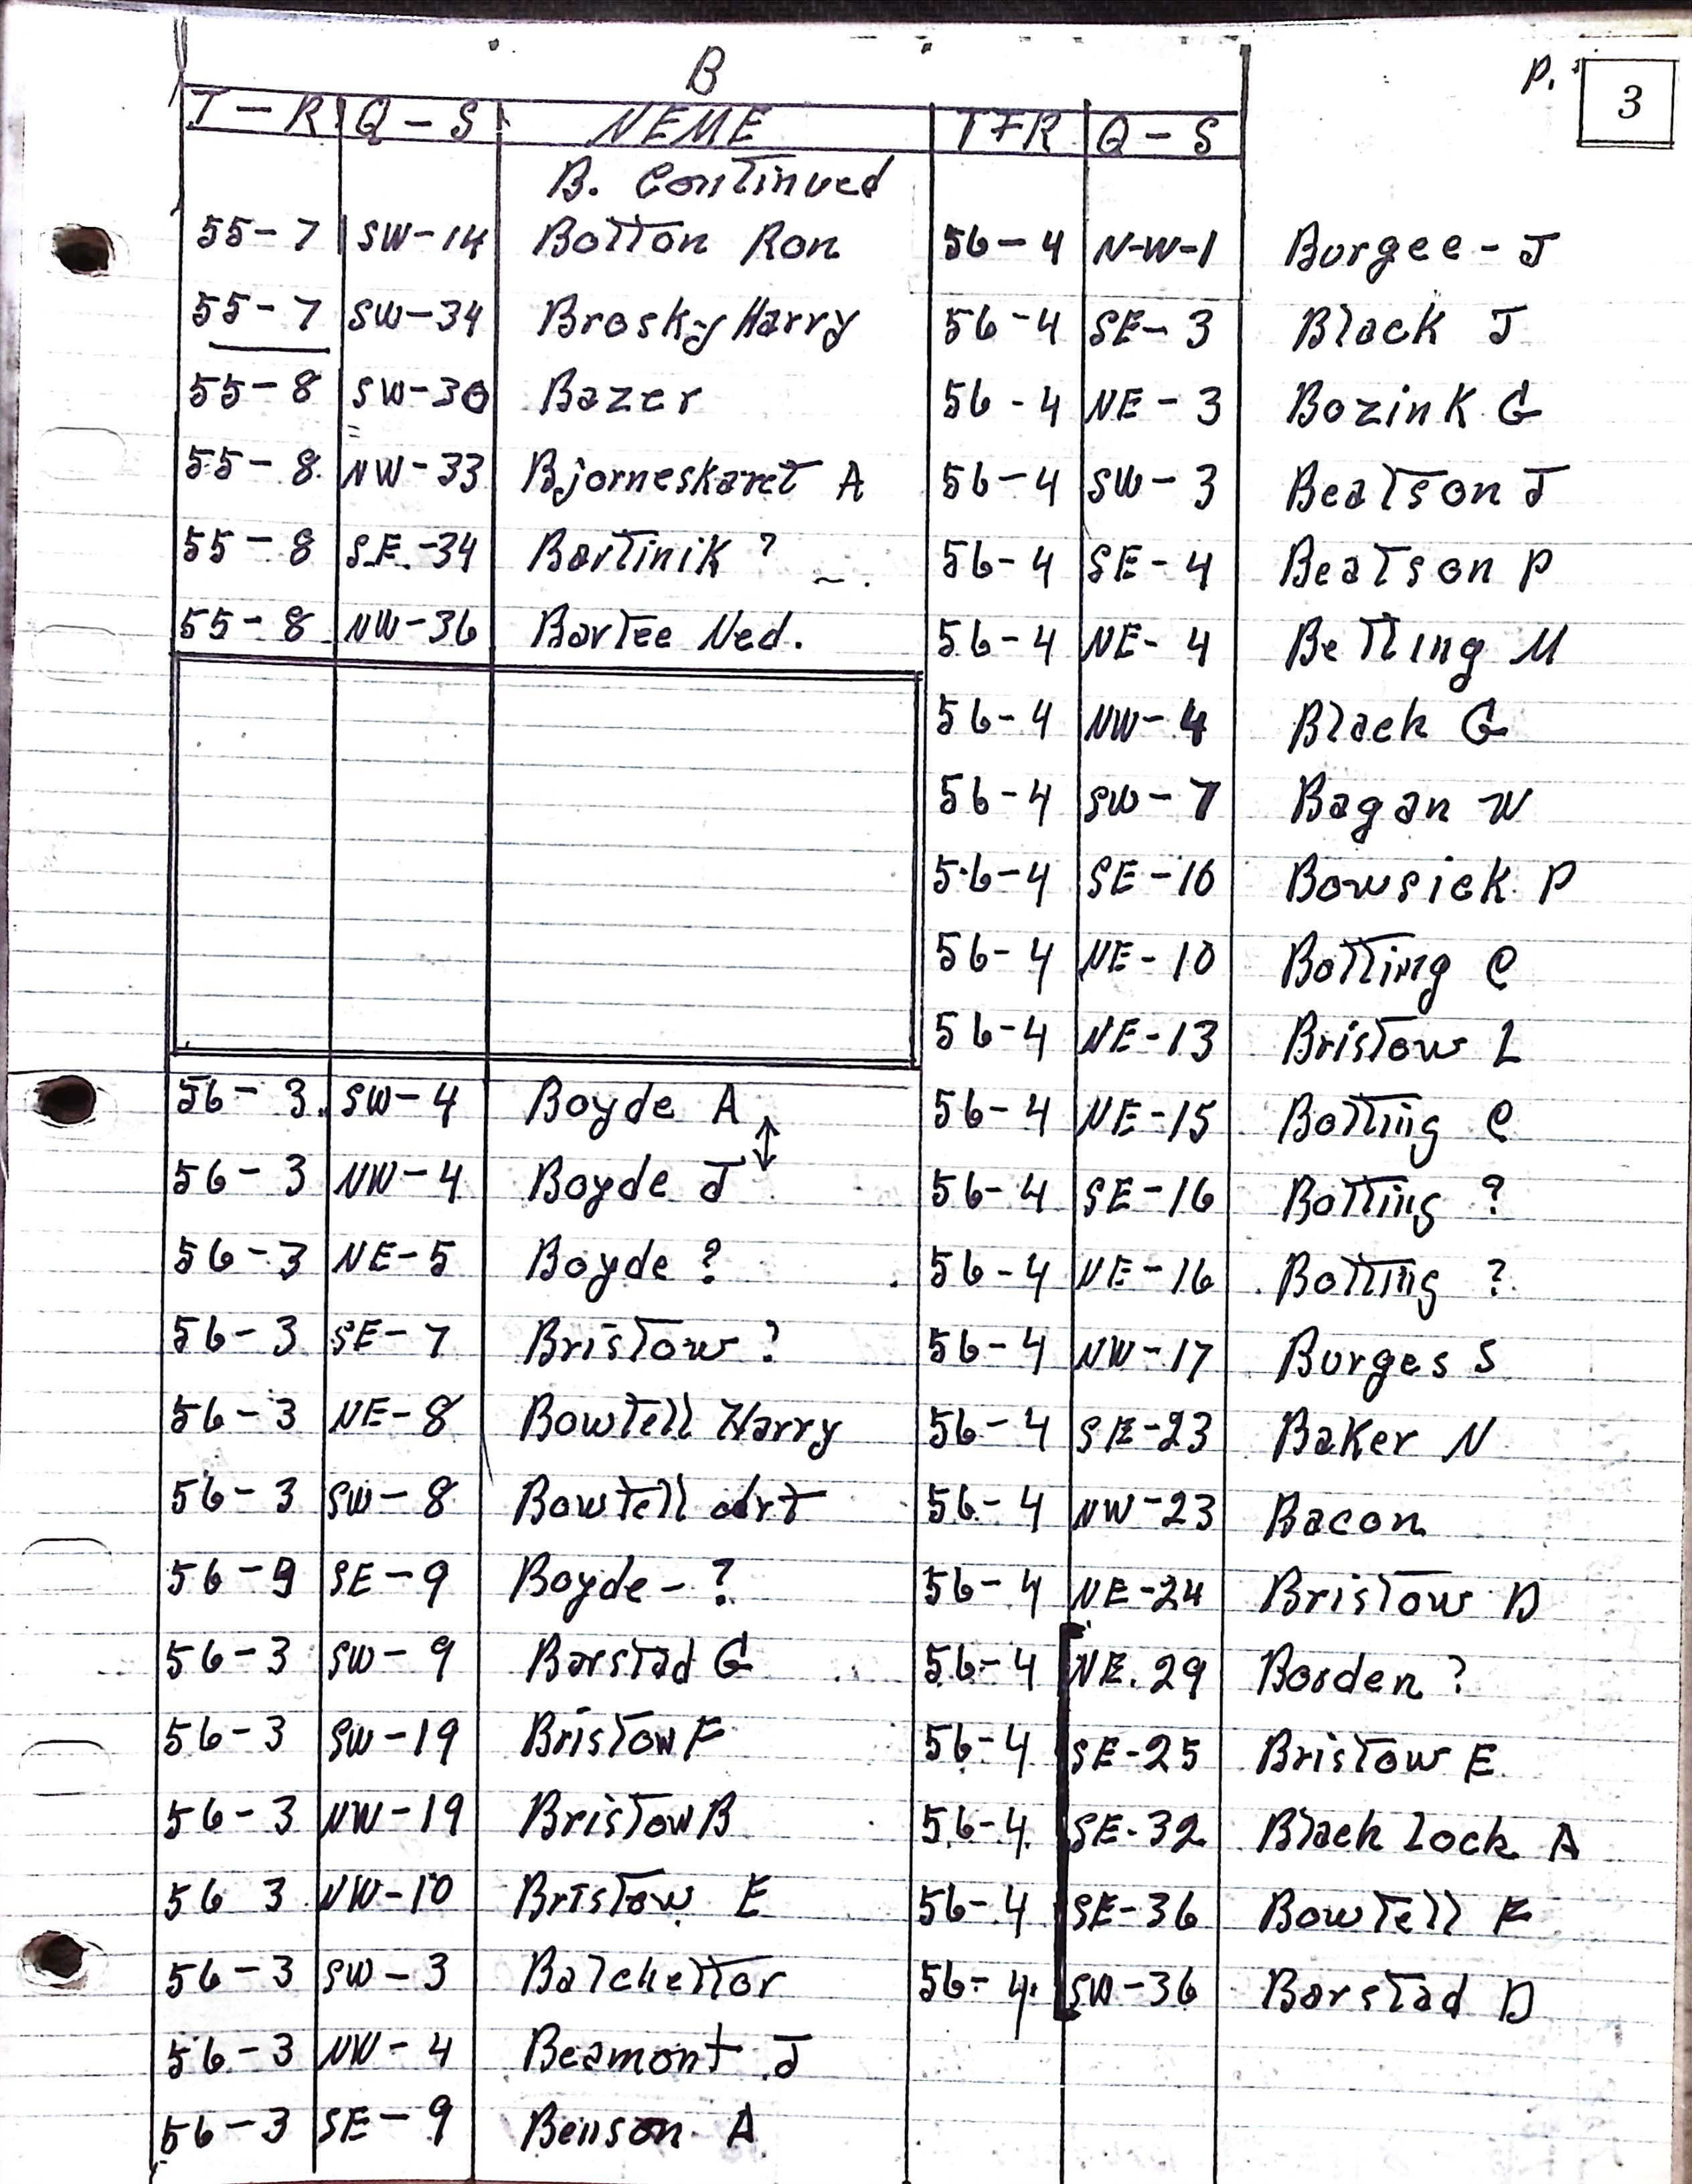 B
P. 3
T-R Q-S NEME T+R Q-S
B. Continued
55-7 SW-14 Botton Ron
55-7 SW-34 Brosky Harry
55-8 SW-30 Bazer
55-8 NW-33 Bjorneskaret A
55-8 SE-34 Bartinik ?
55-8 NW-36 Bartee Ned.
56-3 SW-4 Boyde A
56-3 NW-4 Boyde J
56-3 NE-5 Boyde ?
56-3 SE-7 Bristow ?
56-3 NE-8 Bowtell Harry
56-3 SW-8 Bowtell Art
56-9 SE-9 Boyde - ?
56-3 SW-9 Barstad G
56-3 SW-19 Bristow F
56-3 NW-19 Bristow B
56 3 NW-10 Bristow E
56-3 SW-3 Batchettor
56-3 NW-4 Beamont J
56-3 SE-9 Benson A
56-4 N-W-1 Burgee - J
56-4 SE-3 Black J
56-4 NE-3 Bozink G
56-4 SW-3 Beatson J
56-4 SE-4 Beatson P
56-4 NE-4 Betting M
56-4 NW-4 Black G
56-4 SW-7 Bagan W
56-4 SE-10 Bowsick P
56-4 NE-10 Botting C
56-4 NE-13 Bristow L
56-4 NE-15 Botting C
56-4 SE-16 Botting ?
56-4 NE-16 Botting ?
56-4 NW-17 Burges S
56-4 SE-23 Baker N
56-4 NW-23 Bacon
56-4 NE-24 Bristow D
56-4 NE.29 Borden ?
56-4 SE-25 Bristow E
56-4 SE-32 Black lock A
56-4 SE-36 Bowtell F
56-4 SW-36 Barstad D